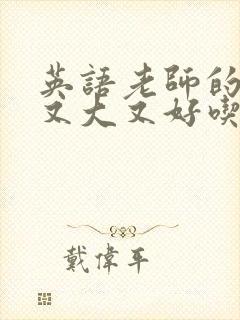 英語老師的
又大又好喫
戴偉平